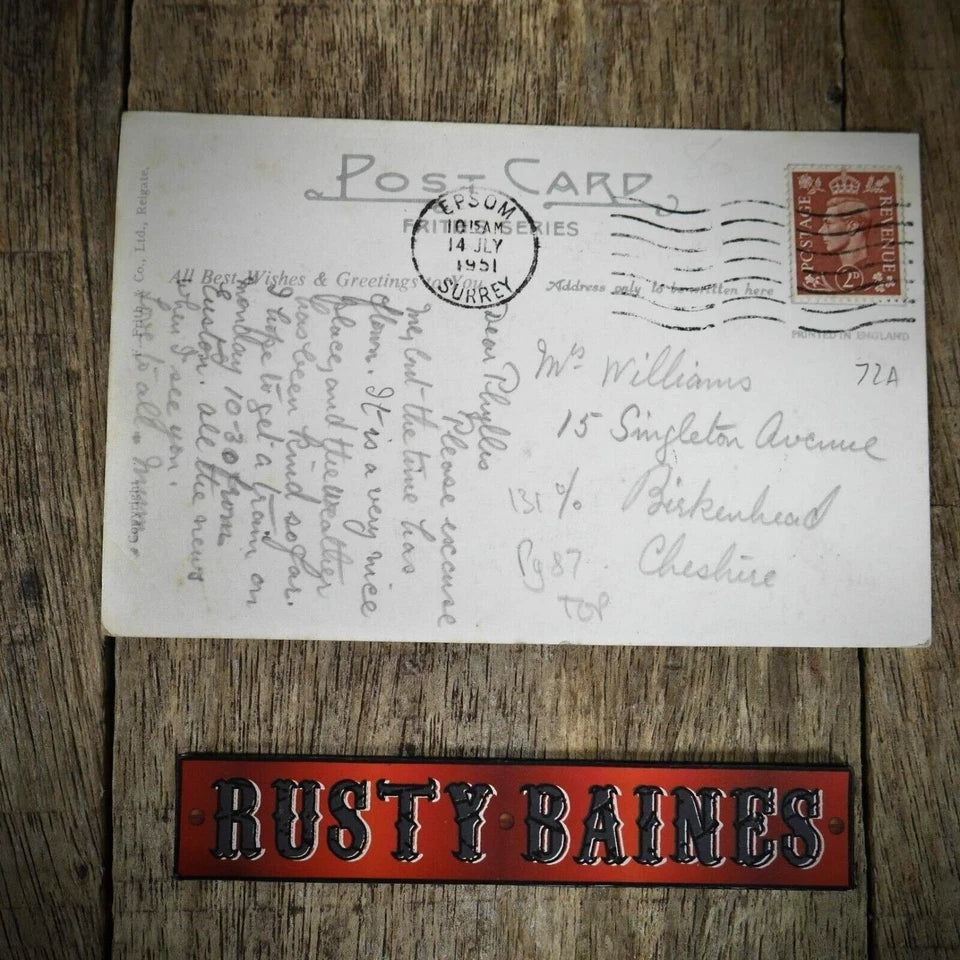 POST CARD
FRITH'S SERIES
EPSOM
10 15 AM
14 JLY
1951
SURREY
POSTAGE REVENUE
2D
All Best Wishes & Greetings to You
Address only to be written here
PRINTED IN ENGLAND
72A
Mrs Williams
15 Singleton Avenue
Birkenhead
Cheshire
Dear Phyllis
Please excuse
me, but the time has
flown. It is a very nice
place, and the weather
has been kind so far.
I hope to get a train on
Monday 10-30 from
Euston. all the news
when I see you.
Love to all. Mum
F. Frith & Co., Ltd., Reigate.
Pg 87
RUSTY BAINES